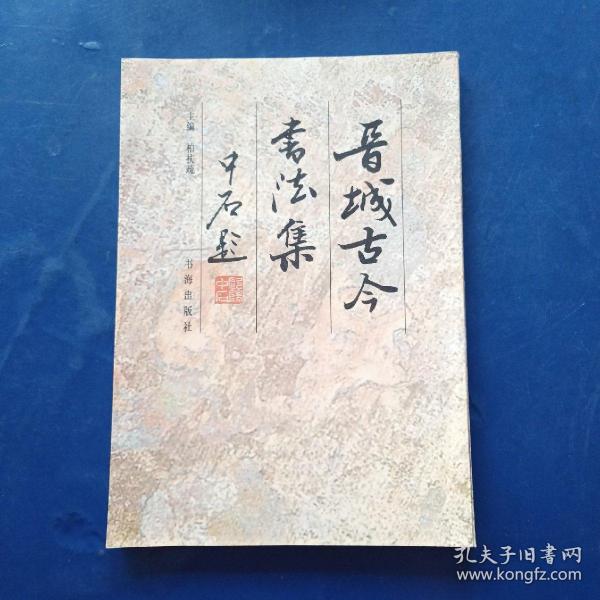 晋城古今
书法集
中石题
主编 柏扶疏
书海出版社
孔夫子旧書网
www.kongfz.com